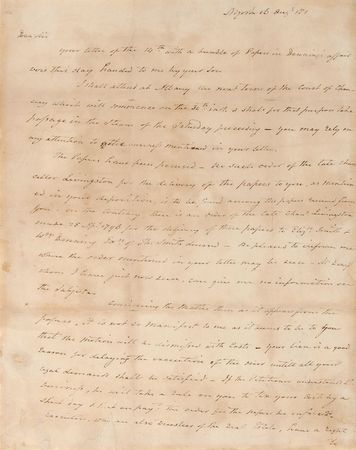 Dear Sir
your letter of the 14th with a bundle of Papers in Denning's affair
were this day handed to me by your son
I shall attend at Albany the next term of the Court of Chan
cery which will commence on the inst. & shall for that purpose take
passage in the Steam of the Saturday preceding — you may rely on
any attention to business mentioned in your letter.
The Papers have been perused — No such order of the late Chan
cellor Livingston for the delivery of the papers to you, as mention
ed in your deposition, is to be found among the papers received from
you — on the contrary, there is an order of the late Chanr Livingston
under 28 Ap. 1796 for the delivery of these papers to Elizh Smith &
Wm Denning of the Smith deceased — Be pleased to inform me
where the order mentioned in your letter may be seen — Mr
whom I have just now seen, can give me no information on
the subject.
Considering the Matter then as it appears from the
papers, it is not so manifest to me as it seems to be to you
that the Motion will be dismissed with Costs — Your lien is a good
reason for delaying the execution of the order untill all your
legal demands shall be satisfied — If the Petitioner understands
business, he will take a rule on you to tax your bill by a
short day & if not on pay't the order for the papers be enforced
executor, who are also trustees of the real Estate, have a right
to